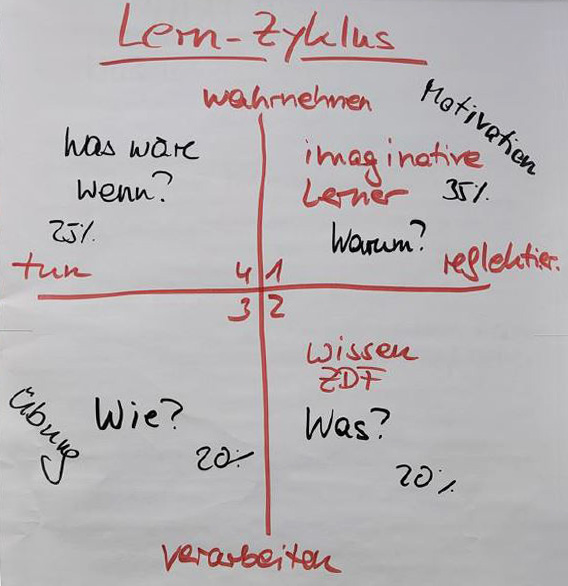 Lern-Zyklus
wahrnehmen
Motivation
Was wäre
wenn?
25%
imaginative
Lerner 35%
Warum?
tun
reflektier.
4 1
3 2
Wissen
ZDF
Was?
20%
Übung
Wie?
20%
verarbeiten